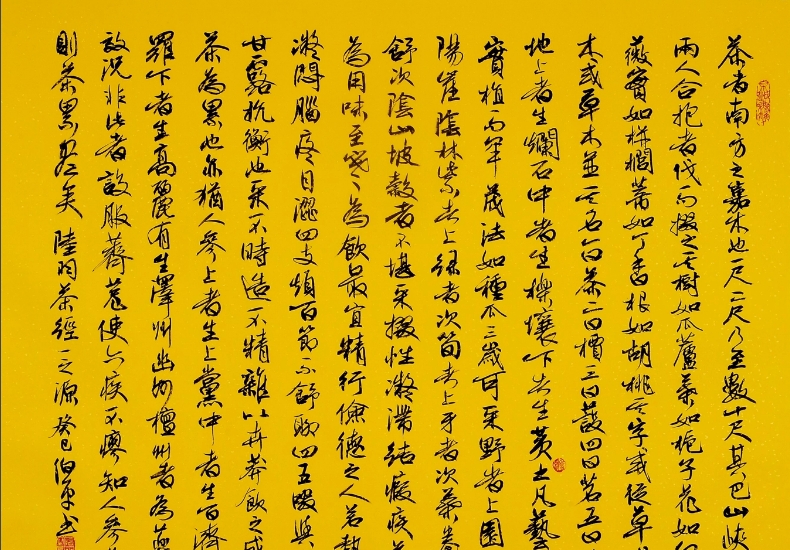 茶者南方之嘉木也一尺二尺乃至數十尺其巴山峽
兩人合抱者伐而掇之其樹如瓜蘆葉如梔子花如
薇實如栟櫚蒂如丁香根如胡桃其字或從草
木或草木並其名一曰茶二曰檟三曰蔎四曰茗五曰
地上者生爛石中者生櫟壤下者生黃土凡藝
實植而罕茂法如種瓜三歲可采野者上園
陽崖陰林紫者上綠者次筍者上牙者次葉卷
舒次陰山坡穀者不堪采掇性凝滯結瘕疾
為用味至寒為飲最宜精行儉德之人若熱
凝悶腦疼目澀四支煩百節不舒聊四五啜與
甘露抗衡也采不時造不精雜以卉莽飲之成
茶為累也亦猶人參上者生上黨中者生百濟
羅下者生高麗有生澤州幽州檀州者為藥
效況非此者設服薺苨使六疾不瘳知人參
則茶累盡矣 陸羽茶經一之源 癸巳 伯平书